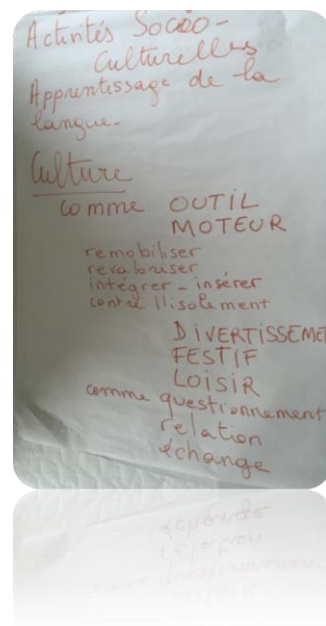 Activités Socio-
Culturelles
Apprentissage de la
langue-
Culture
comme OUTIL
MOTEUR
remobiliser
revaloriser
intégrer - insérer
contre l'isolement
DIVERTISSEME
FESTIF
LOISIR
comme questionnement
relation
échange